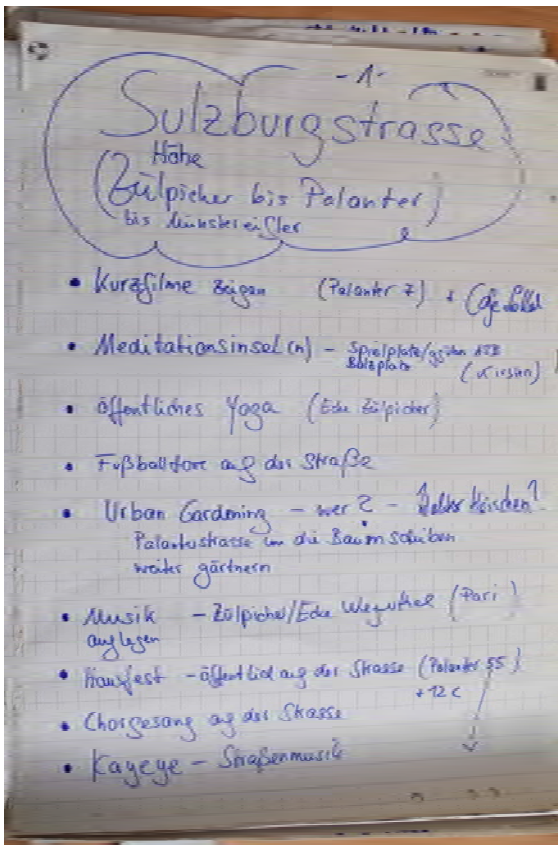 -1-
Sulzburgstrasse
Höhe
(Zülpicher bis Palanter)
bis Münstereifler
• Kurzfilme zeigen (Palanter 7) + Café
• Meditationsinsel(n) - Spielplatz/
Bolzplatz (Kirsten)
• öffentliches Yoga (Ecke Zülpicher)
• Fußballtore auf der Straße
• Urban Gardening - wer ? -
Palanterstrasse um die Baumscheiben
weiter gärtnern
• Musik - Zülpicher/Ecke (Pari)
auflegen
• Hausfest - öffentlich auf der Strasse (Palanter 55)
+ 12c
• Chorgesang auf der Strasse
• Kayeye - Straßenmusik